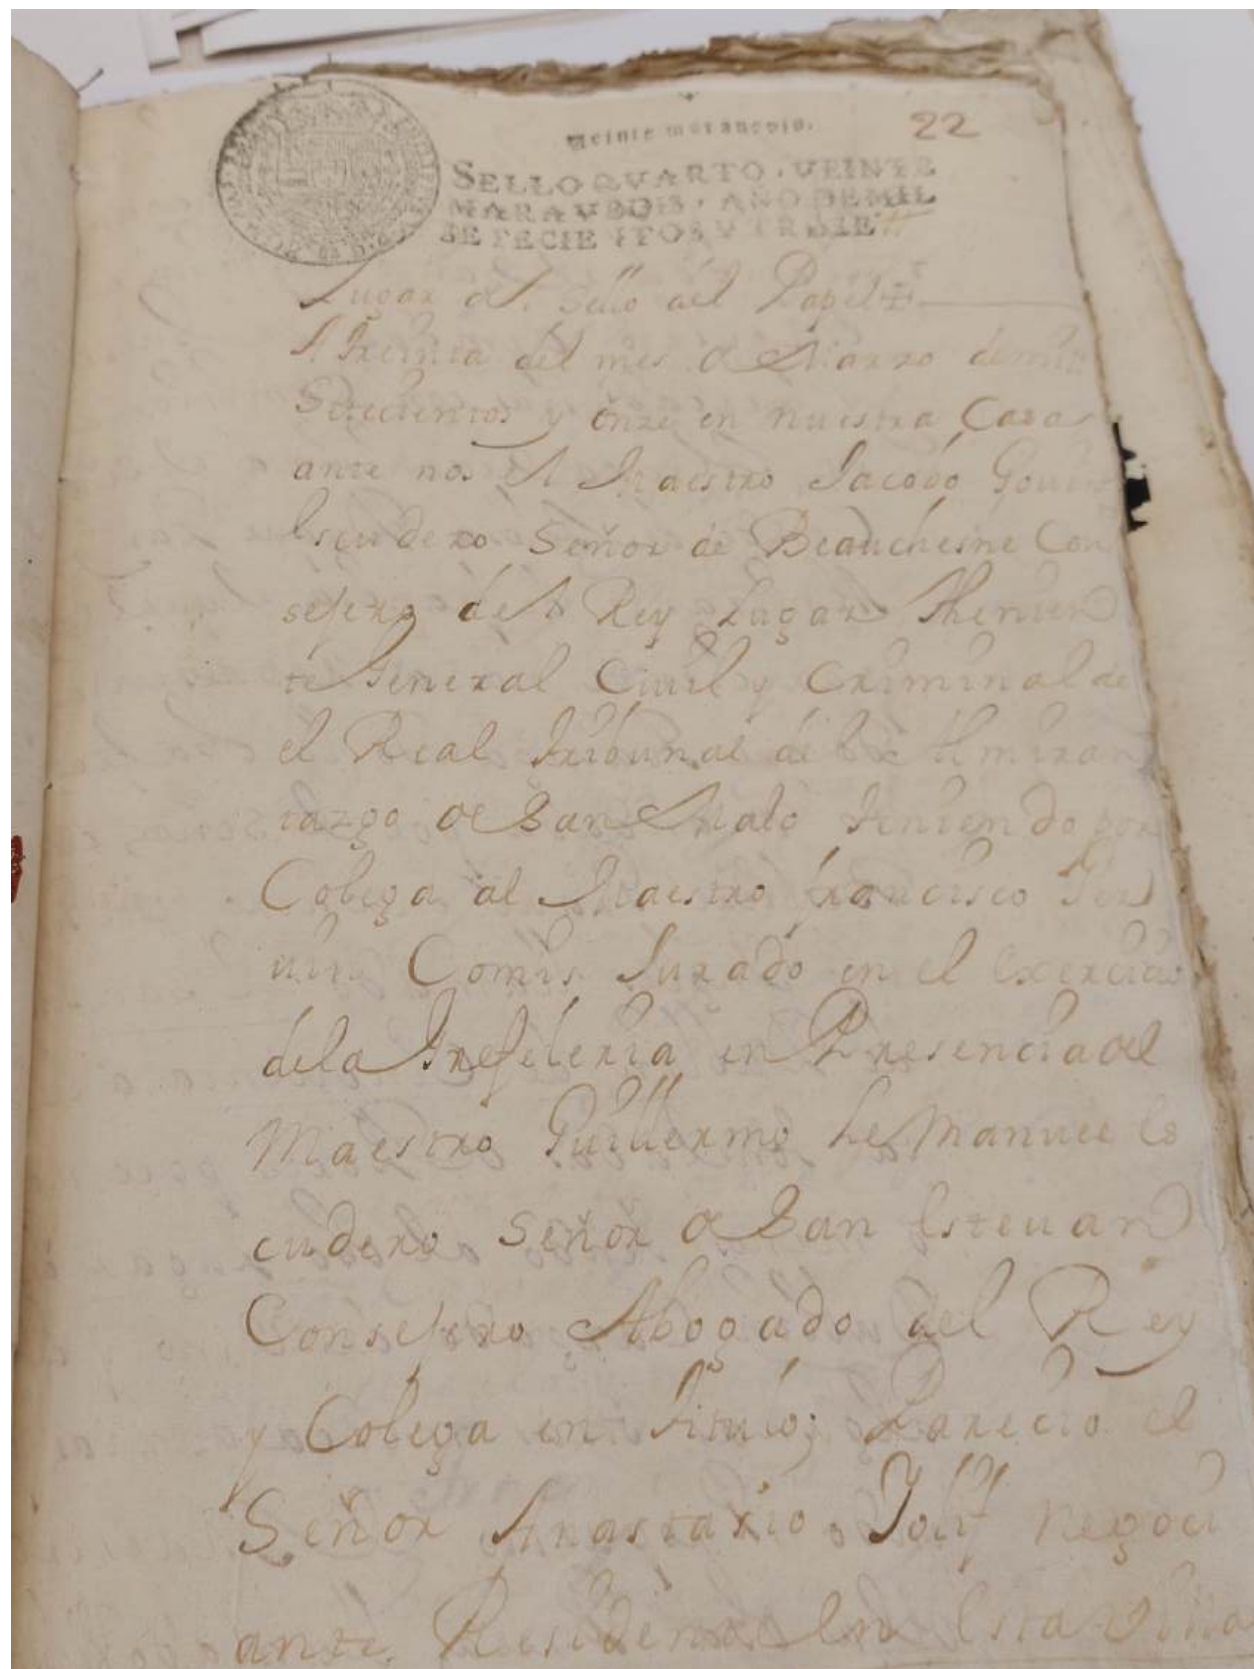 Veinte marauedis.
22
SELLO QVARTO, VEINTE
MARAVEDIS, AÑO DE MIL
SETECIENTOS Y TREZE
Lugar del Sello del Papel
A treinta del mes de Marzo de mil
Setecientos y onze en nuestra Casa
ante nos el Maestro Jacobo
Escudero Señor de Beauchesne Con
sejero del Rey Lugar Thenien
te General Ciuil y Criminal de
el Real Tribunal del Almiran
tazgo de San Malo teniendo por
Colega al Maestro francisco
Comis Jurado en el exercicio
dela Grefileria en Presencia del
Maestro Guillermo Le Manuel es
cudero Señor de San Esteuan
Consejero Abogado del Rey
y Colega en titulo; Parecio el
Señor Anastazio Joly negoci
ante Residente en esta Villa